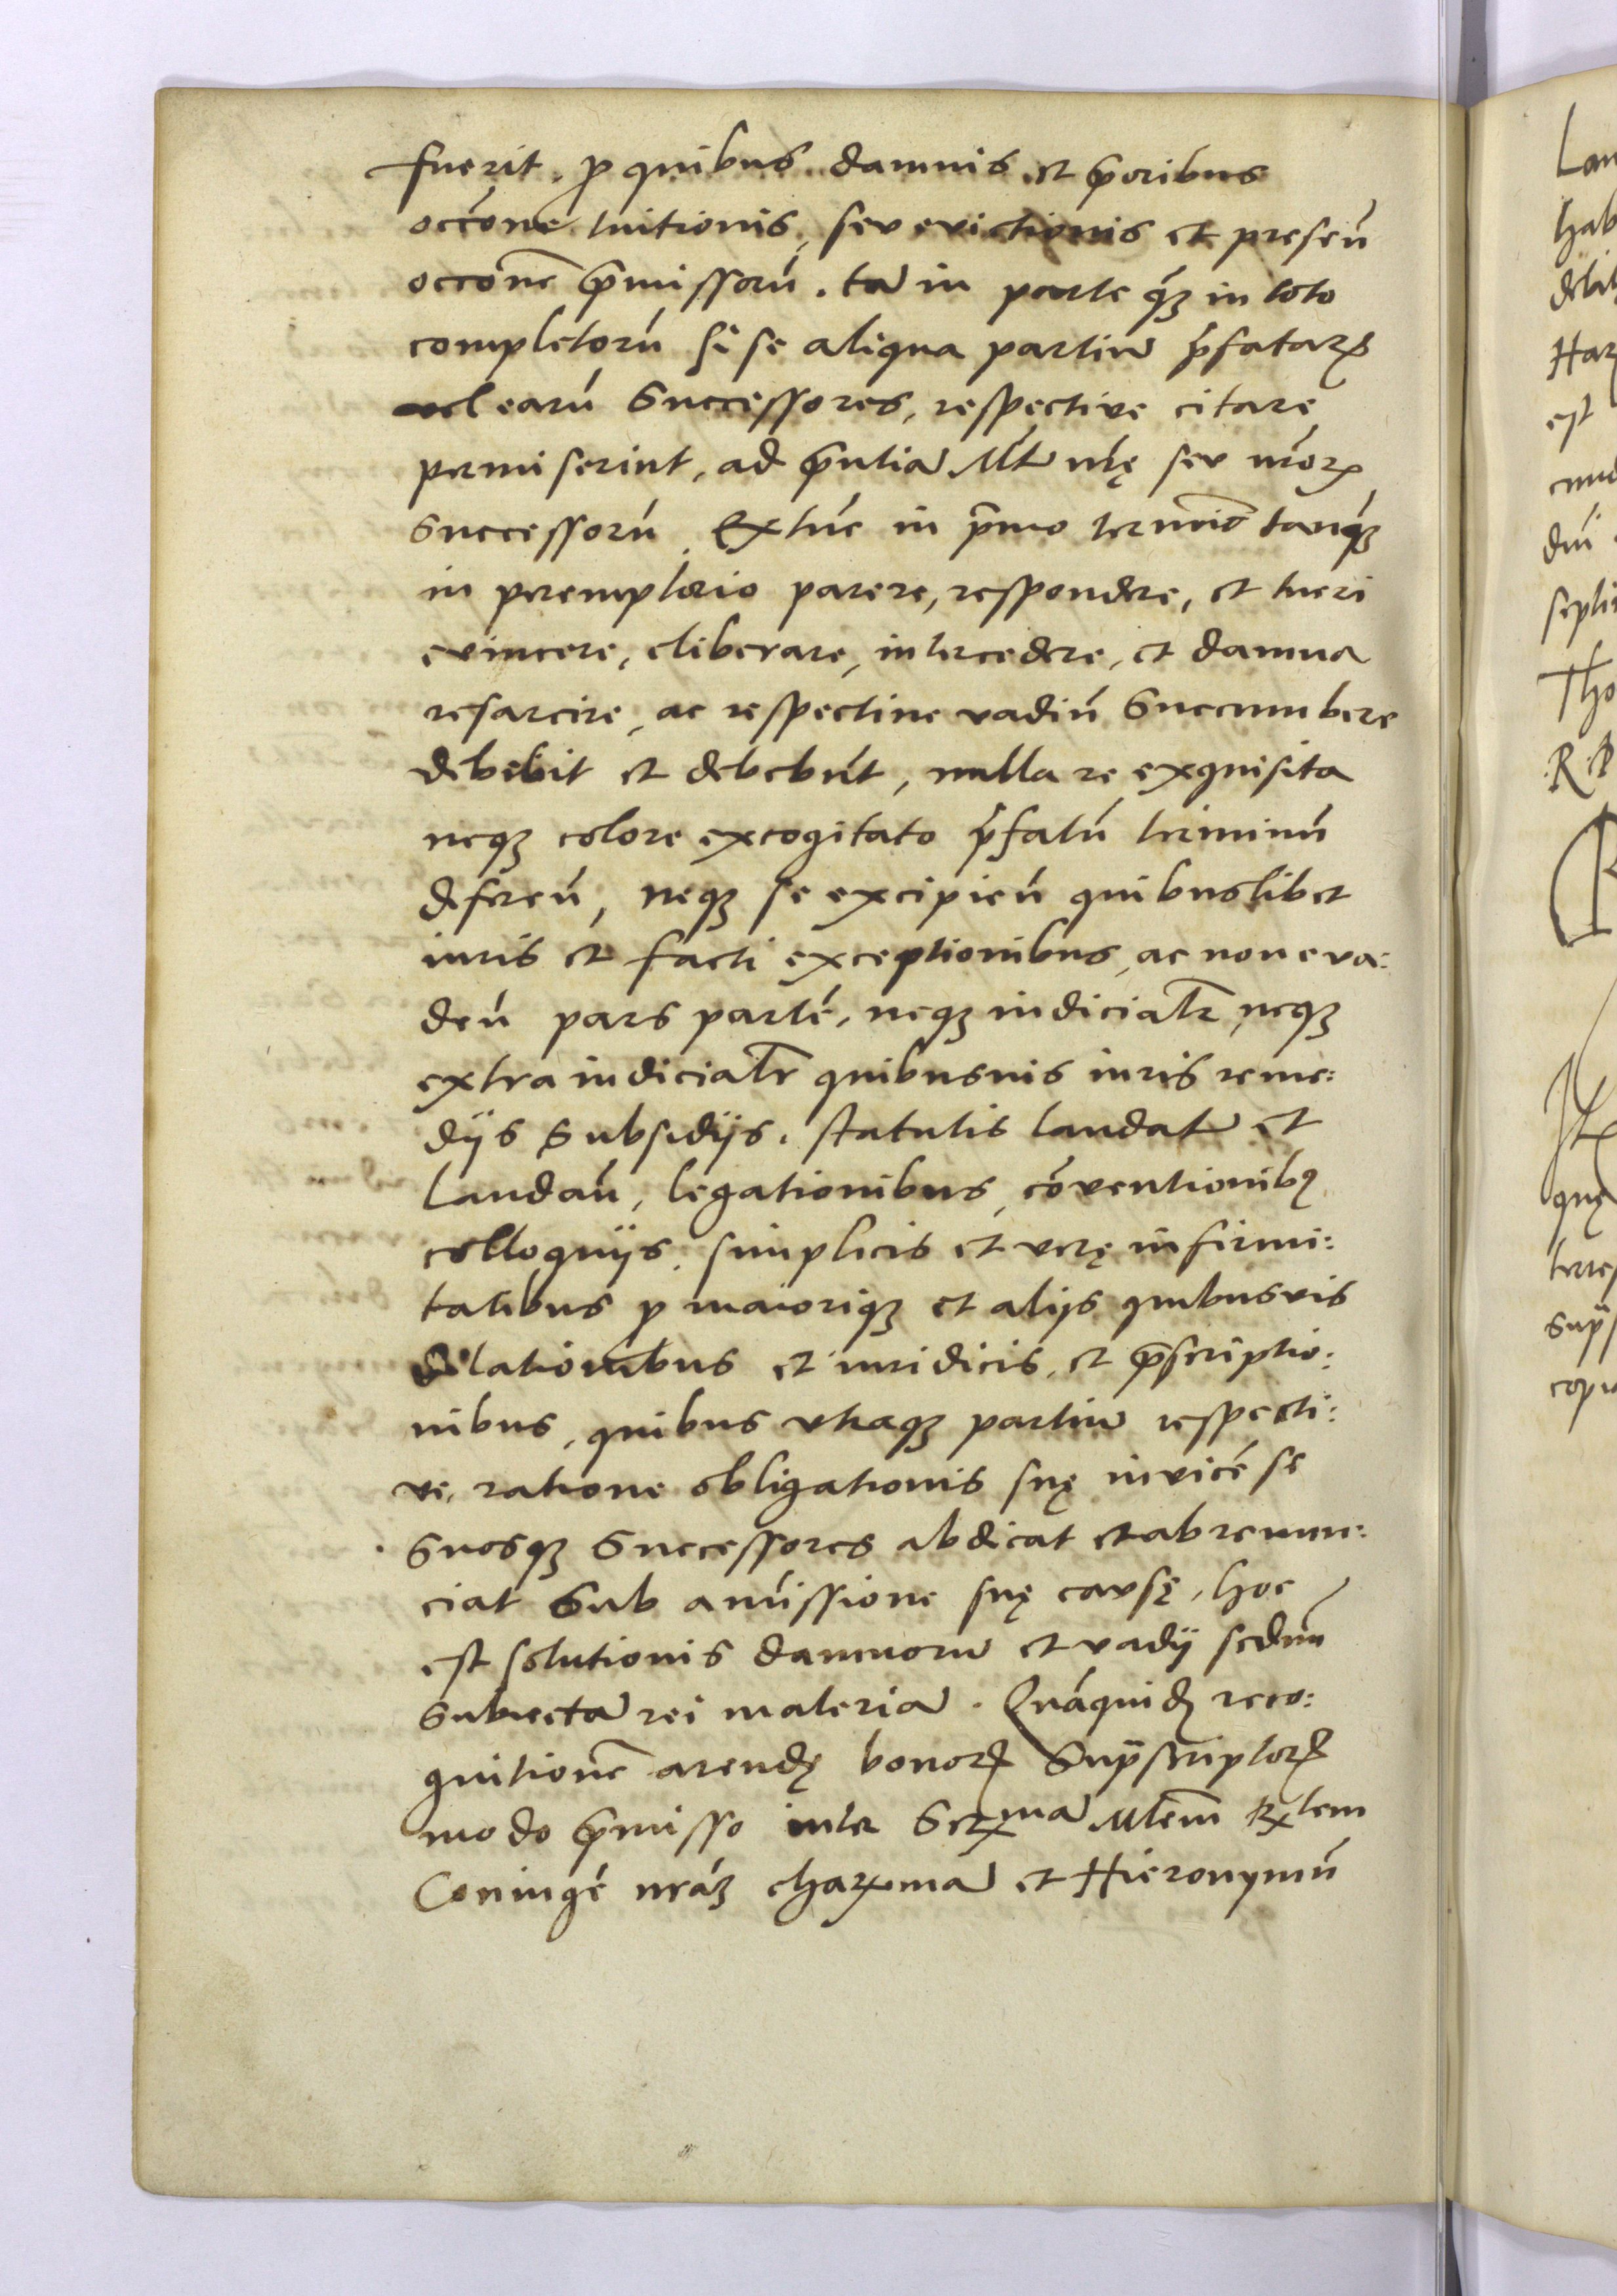 fuerit. p quibus damnis et p̄oribus
occōne tuitionis, seu evictionis et presen̄
occōne p̄missorū. ta in parte q̄ꝫ in toto
completorū si se aliqua partiu p̄fatarꝝ
vel earū Successores, respective citare
permiserint, ad p̄ntia Mt̄ nr̄ę seu nr̄orꝝ
Successorū, Extūc in p̄mo termīo tanq̄ꝫ
in peremptorio parere, respondere, et tueri
evincere, eliberare, intercedere, et damna
resarcire, ac respective vadiū Succumbere
debebit et debebūt, nulla re exquisita
neqꝫ colore excogitato p̄fatū terminū
deferen̄, neqꝫ se excipien̄ quibuslibet
iuris et facti exceptionibus, ac non eva:
den̄ pars partē, neqꝫ iudicialr̄ neqꝫ
extra iudicialr̄ quibusuis iuris reme:
dijs Subsidijs, statutis laudat et
Laudan̄, legationibus, cōventionibꝯ
colloquijs, simplicis et verę infirmi:
tatibus p maioriqꝫ et alijs quibusvis
dilationibus et iuridicis, et p̄scriptio:
nibus, quibus vtraqꝫ partiu respecti:
ve, ratione obligationis suę invicē se
Suosqꝫ Successores abdicat et abrenun:
ciat Sub amissione suę causę, hoc
est solutionis damnoru et vadij sedm̄
Subiecta rei materia. Quāquidē reco:
gnitionē arendę bonorꝝ Sup̄scriptorꝝ
modo p̄misso inter Serꝫma Mtem̄ Rꝫlem
Coniugē nrāꝫ charꝫma et Hieronymū
Lan
hab
est
septi
Tho
R. P
quę